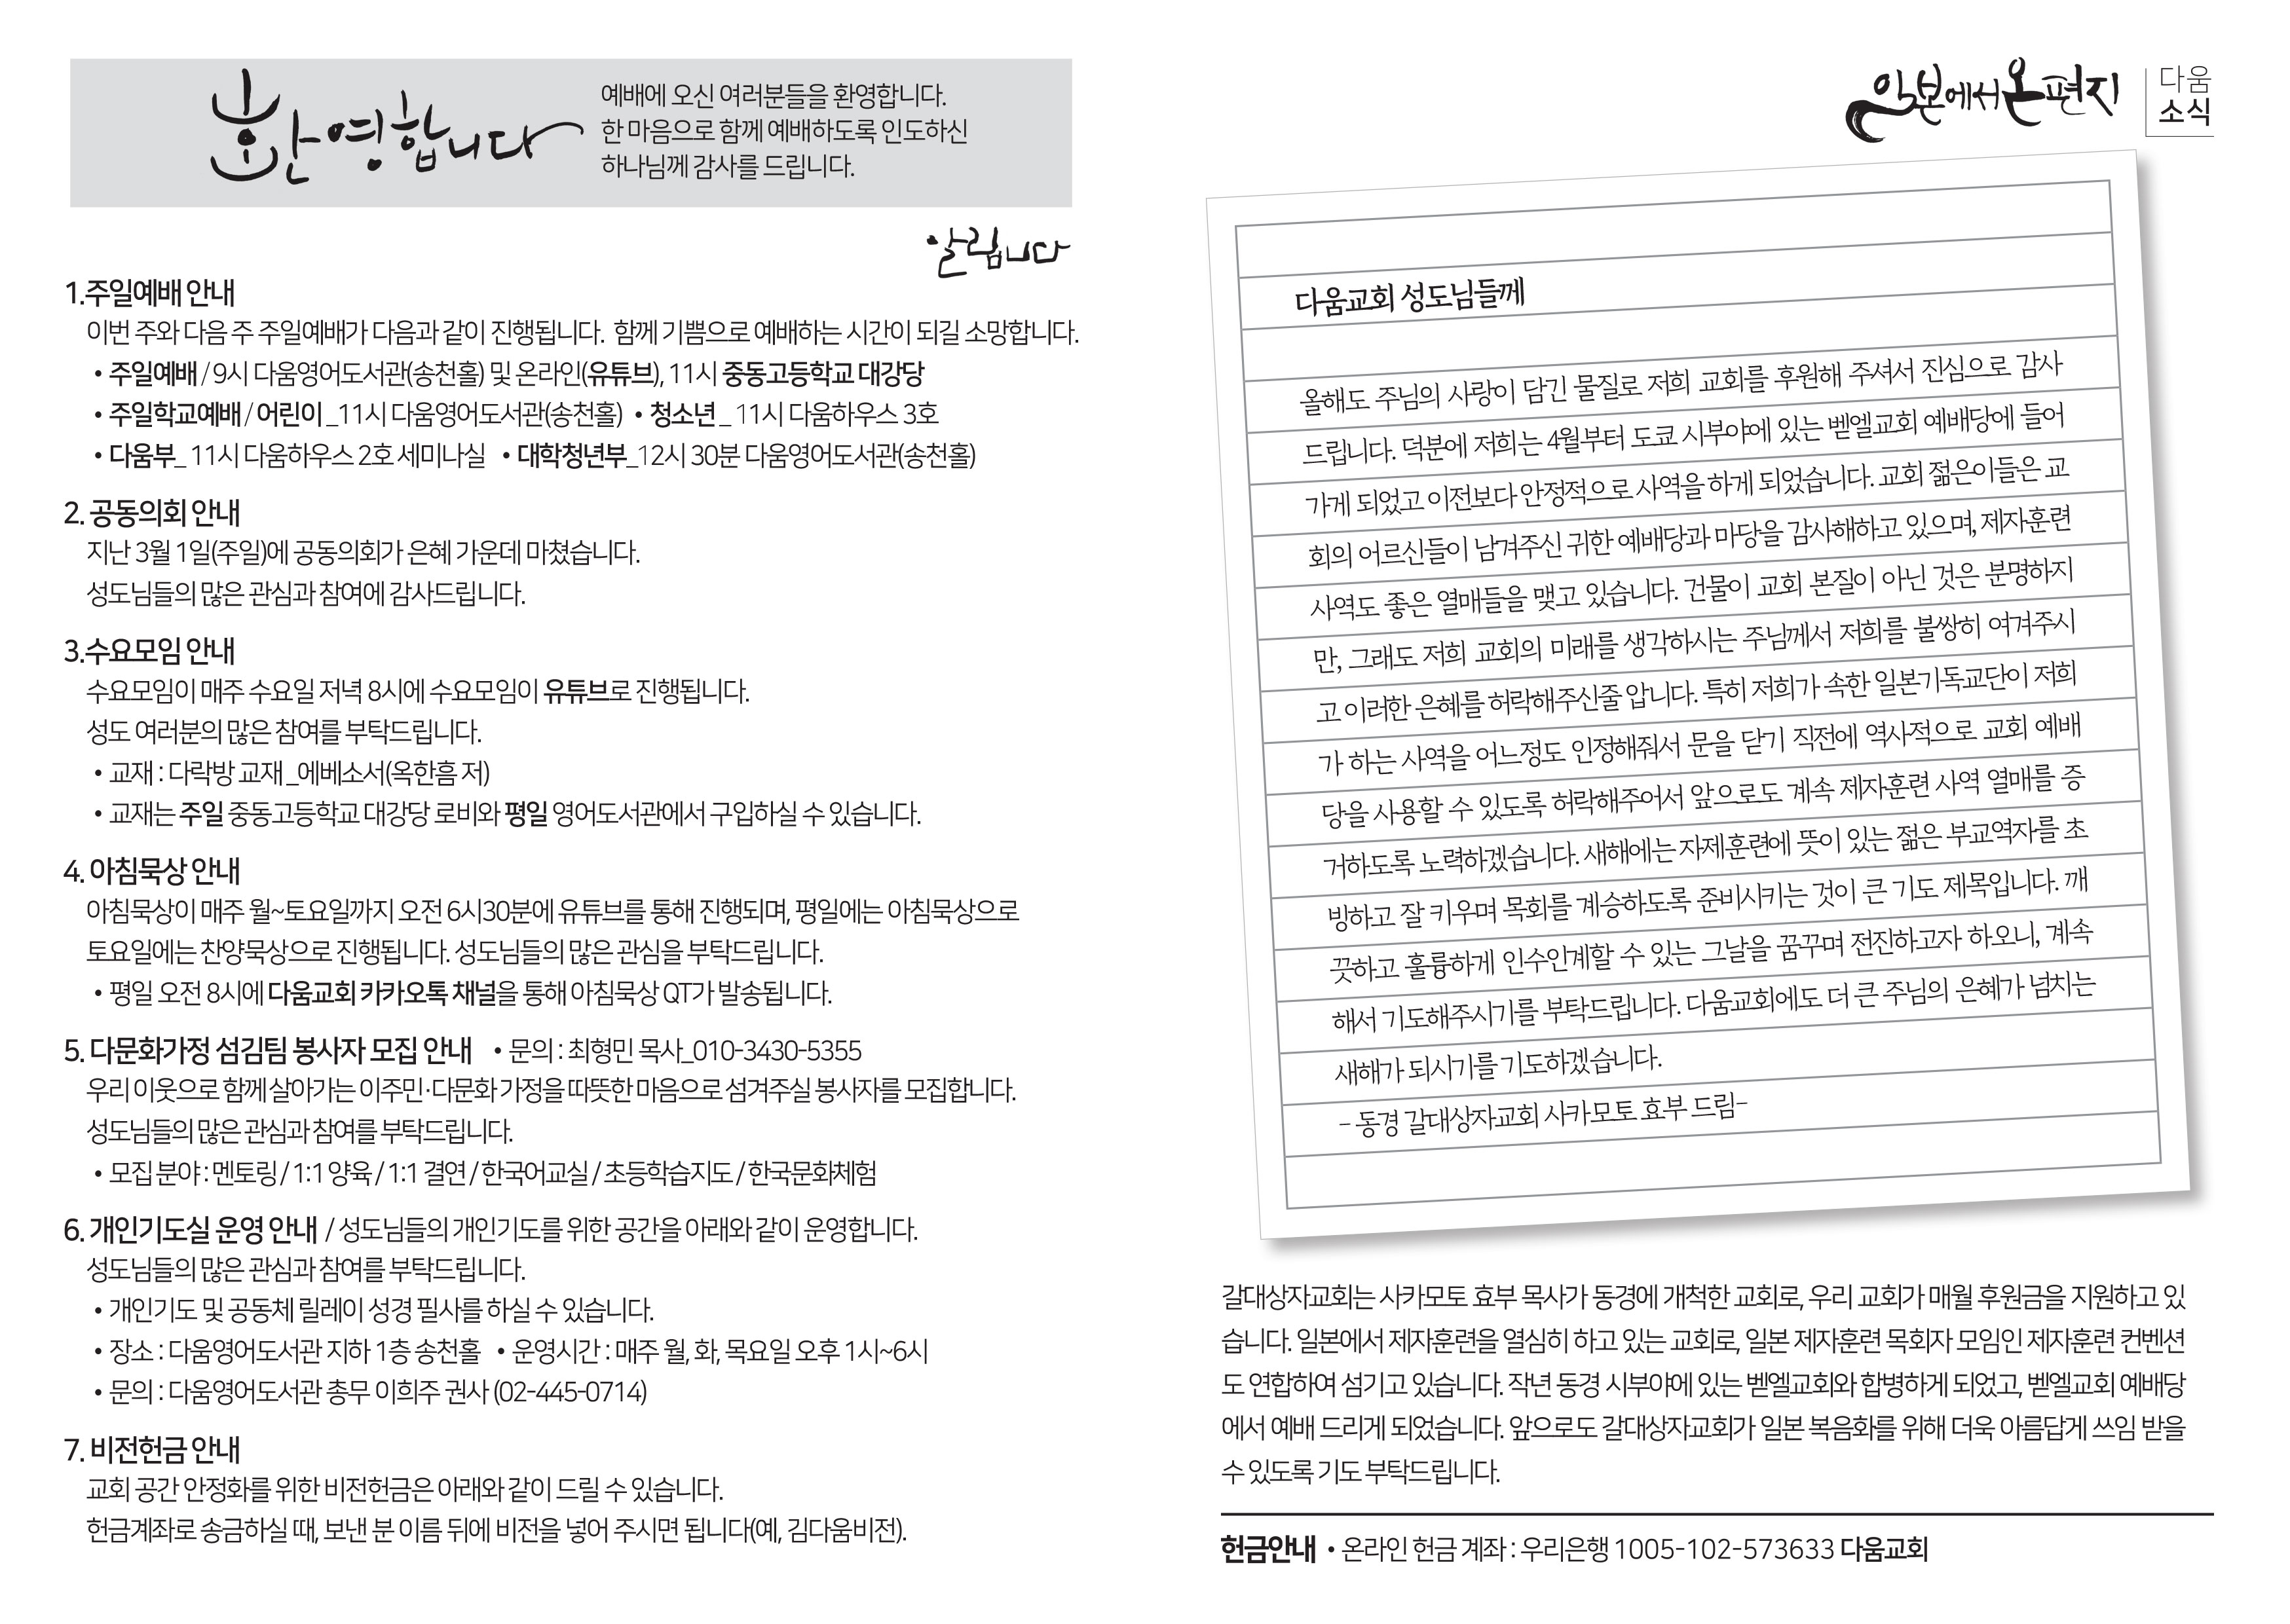 환영합니다
예배에 오신 여러분들을 환영합니다.
한 마음으로 함께 예배하도록 인도하신
하나님께 감사를 드립니다.
알립니다
1.주일예배 안내
이번 주와 다음 주 주일예배가 다음과 같이 진행됩니다. 함께 기쁨으로 예배하는 시간이 되길 소망합니다.
• 주일예배 / 9시 다움영어도서관(송천홀) 및 온라인(유튜브), 11시 중동고등학교 대강당
• 주일학교예배 / 어린이 _11시 다움영어도서관(송천홀) • 청소년 _ 11시 다움하우스 3호
• 다움부_ 11시 다움하우스 2호 세미나실 • 대학청년부_12시 30분 다움영어도서관(송천홀)
2. 공동의회 안내
지난 3월 1일(주일)에 공동의회가 은혜 가운데 마쳤습니다.
성도님들의 많은 관심과 참여에 감사드립니다.
3.수요모임 안내
수요모임이 매주 수요일 저녁 8시에 수요모임이 유튜브로 진행됩니다.
성도 여러분의 많은 참여를 부탁드립니다.
• 교재 : 다락방 교재 _에베소서(옥한흠 저)
• 교재는 주일 중동고등학교 대강당 로비와 평일 영어도서관에서 구입하실 수 있습니다.
4. 아침묵상 안내
아침묵상이 매주 월~토요일까지 오전 6시30분에 유튜브를 통해 진행되며, 평일에는 아침묵상으로
토요일에는 찬양묵상으로 진행됩니다. 성도님들의 많은 관심을 부탁드립니다.
• 평일 오전 8시에 다움교회 카카오톡 채널을 통해 아침묵상 QT가 발송됩니다.
5. 다문화가정 섬김팀 봉사자 모집 안내 • 문의 : 최형민 목사_010-3430-5355
우리 이웃으로 함께 살아가는 이주민·다문화 가정을 따뜻한 마음으로 섬겨주실 봉사자를 모집합니다.
성도님들의 많은 관심과 참여를 부탁드립니다.
• 모집 분야 : 멘토링 / 1:1 양육 / 1:1 결연 / 한국어교실 / 초등학습지도 / 한국문화체험
6. 개인기도실 운영 안내 / 성도님들의 개인기도를 위한 공간을 아래와 같이 운영합니다.
성도님들의 많은 관심과 참여를 부탁드립니다.
• 개인기도 및 공동체 릴레이 성경 필사를 하실 수 있습니다.
• 장소 : 다움영어도서관 지하 1층 송천홀 • 운영시간 : 매주 월, 화, 목요일 오후 1시~6시
• 문의 : 다움영어도서관 총무 이희주 권사 (02-445-0714)
7. 비전헌금 안내
교회 공간 안정화를 위한 비전헌금은 아래와 같이 드릴 수 있습니다.
헌금계좌로 송금하실 때, 보낸 분 이름 뒤에 비전을 넣어 주시면 됩니다(예, 김다움비전).
일본에서 온 편지
다움
소식
다움교회 성도님들께
올해도 주님의 사랑이 담긴 물질로 저희 교회를 후원해 주셔서 진심으로 감사
드립니다. 덕분에 저희는 4월부터 도쿄 시부야에 있는 벧엘교회 예배당에 들어
가게 되었고 이전보다 안정적으로 사역을 하게 되었습니다. 교회 젊은이들은 교
회의 어르신들이 남겨주신 귀한 예배당과 마당을 감사해하고 있으며, 제자훈련
사역도 좋은 열매들을 맺고 있습니다. 건물이 교회 본질이 아닌 것은 분명하지
만, 그래도 저희 교회의 미래를 생각하시는 주님께서 저희를 불쌍히 여겨주시
고 이러한 은혜를 허락해주신줄 압니다. 특히 저희가 속한 일본기독교단이 저희
가 하는 사역을 어느정도 인정해줘서 문을 닫기 직전에 역사적으로 교회 예배
당을 사용할 수 있도록 허락해주어서 앞으로도 계속 제자훈련 사역 열매를 증
거하도록 노력하겠습니다. 새해에는 자제훈련에 뜻이 있는 젊은 부교역자를 초
빙하고 잘 키우며 목회를 계승하도록 준비시키는 것이 큰 기도 제목입니다. 깨
끗하고 훌륭하게 인수인계할 수 있는 그날을 꿈꾸며 전진하고자 하오니, 계속
해서 기도해주시기를 부탁드립니다. 다움교회에도 더 큰 주님의 은혜가 넘치는
새해가 되시기를 기도하겠습니다.
- 동경 갈대상자교회 사카모토 효부 드림-
갈대상자교회는 사카모토 효부 목사가 동경에 개척한 교회로, 우리 교회가 매월 후원금을 지원하고 있
습니다. 일본에서 제자훈련을 열심히 하고 있는 교회로, 일본 제자훈련 목회자 모임인 제자훈련 컨벤션
도 연합하여 섬기고 있습니다. 작년 동경 시부야에 있는 벧엘교회와 합병하게 되었고, 벧엘교회 예배당
에서 예배 드리게 되었습니다. 앞으로도 갈대상자교회가 일본 복음화를 위해 더욱 아름답게 쓰임 받을
수 있도록 기도 부탁드립니다.
헌금안내 • 온라인 헌금 계좌 : 우리은행 1005-102-573633 다움교회